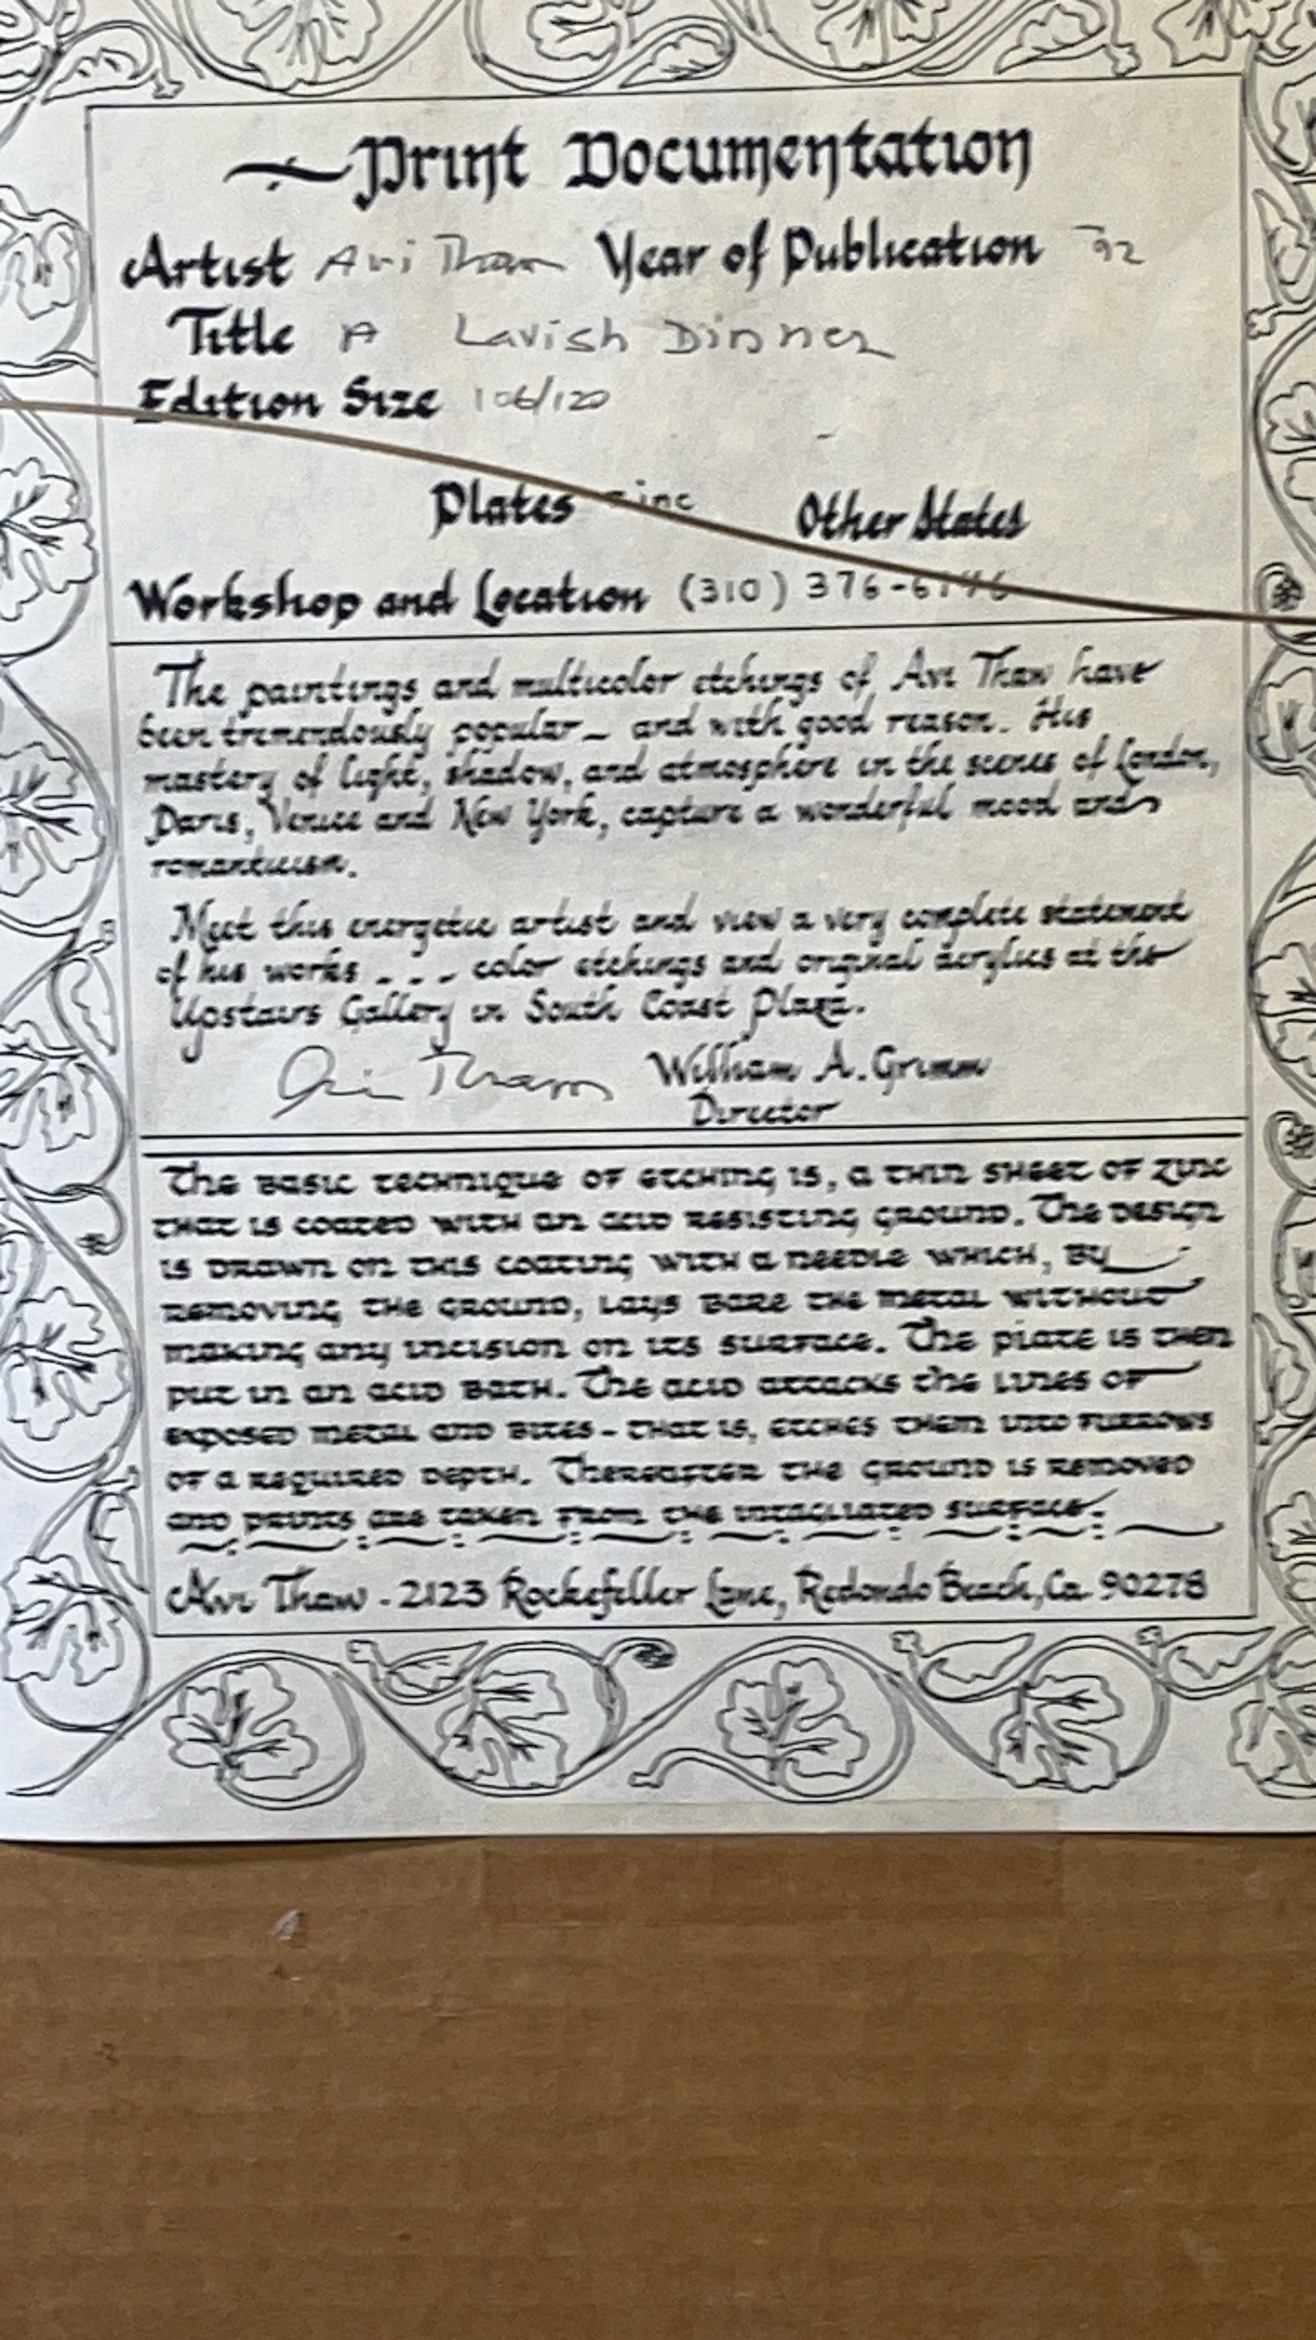 Print Documentation
Artist Avi Thaw Year of Publication '92
Title A Lavish Dinner
Edition Size 106/120
Plates Zinc Other States
Workshop and Location (310) 376-
The paintings and multicolor etchings of Avi Thaw have
been tremendously popular - and with good reason. His
mastery of light, shadow, and atmosphere in the scenes of London,
Paris, Venice and New York, capture a wonderful mood and
romanticism.
Meet this energetic artist and view a very complete statement
of his works . . . color etchings and original acrylics at the
Upstairs Gallery in South Coast Plaza.
Avi Thaw William A. Grimm
Director
The basic technique of etching is, a thin sheet of zinc
that is coated with an acid resisting ground. The design
is drawn on this coating with a needle which, by
removing the ground, lays bare the metal without
making any incision on its surface. The plate is then
put in an acid bath. The acid attacks the lines of
exposed metal and bites - that is, etches them into furrows
of a required depth. Thereafter the ground is removed
and prints are taken from the intagliated surface.
Avi Thaw - 2123 Rockefeller Lane, Redondo Beach, Ca 90278